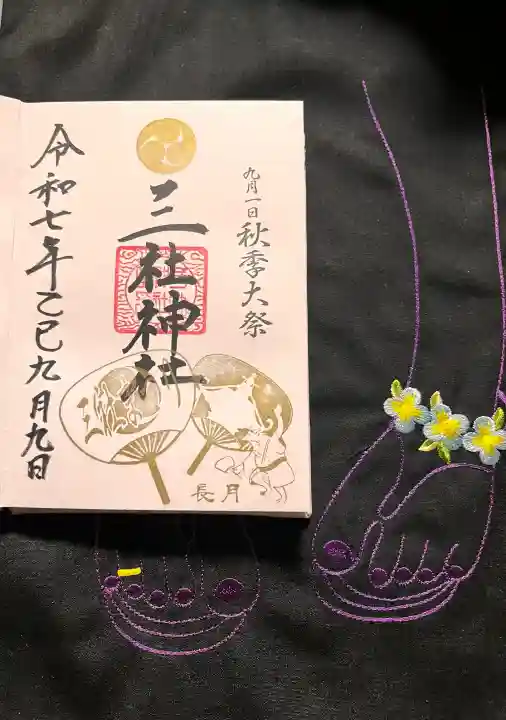 九月一日秋季大祭
三社神社
長月
令和七年乙巳九月九日